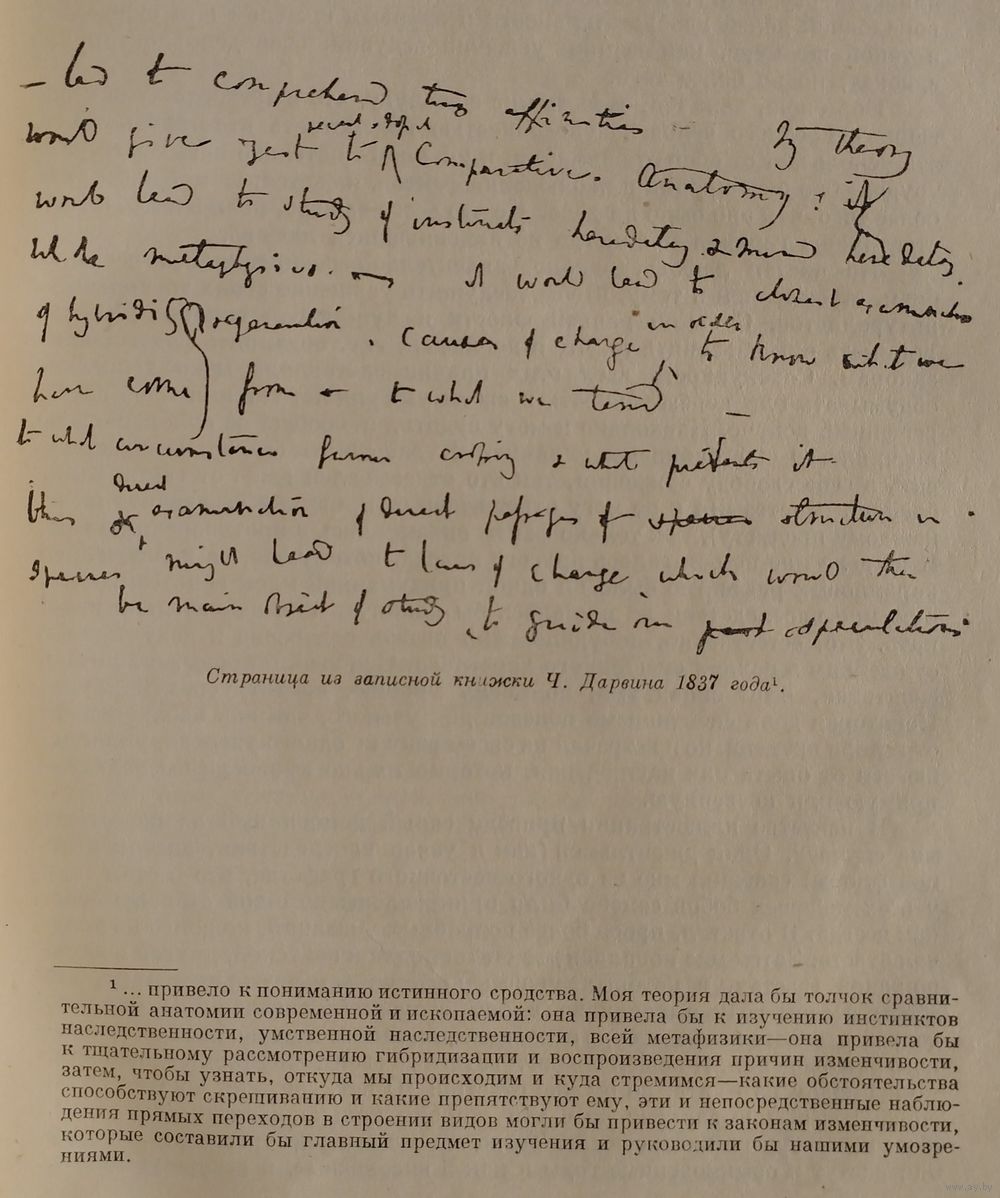 – led to comprehend true affinities – My theory
would give zest to recent & fossil Comparative. Anatomy : it
would lead to study of instincts heredity & mind heredity,
whole metaphysics. — it would lead to closest examination
of hybridity regeneration, causes of change, in order to know what we
have come from & to what we tend –
to what circumstances favour crossing & what prevents it –
this & direct examination of direct passages of species structure in
species, might lead to laws of change, which would then
be main object of study, to guide our past speculations
Страница из записной книжки Ч. Дарвина 1837 года¹.
¹ ... привело к пониманию истинного сродства. Моя теория дала бы толчок сравни-
тельной анатомии современной и ископаемой: она привела бы к изучению инстинктов
наследственности, умственной наследственности, всей метафизики—она привела бы
к тщательному рассмотрению гибридизации и воспроизведения причин изменчивости,
затем, чтобы узнать, откуда мы происходим и куда стремимся—какие обстоятельства
способствуют скрещиванию и какие препятствуют ему, эти и непосредственные наблю-
дения прямых переходов в строении видов могли бы привести к законам изменчивости,
которые составили бы главный предмет изучения и руководили бы нашими умозре-
ниями.
www.ay.by